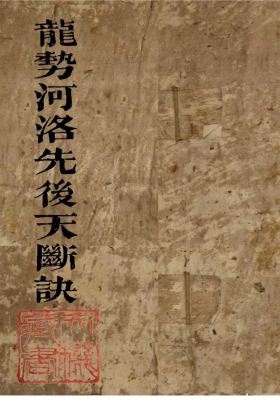 龍勢河洛先後天斷訣